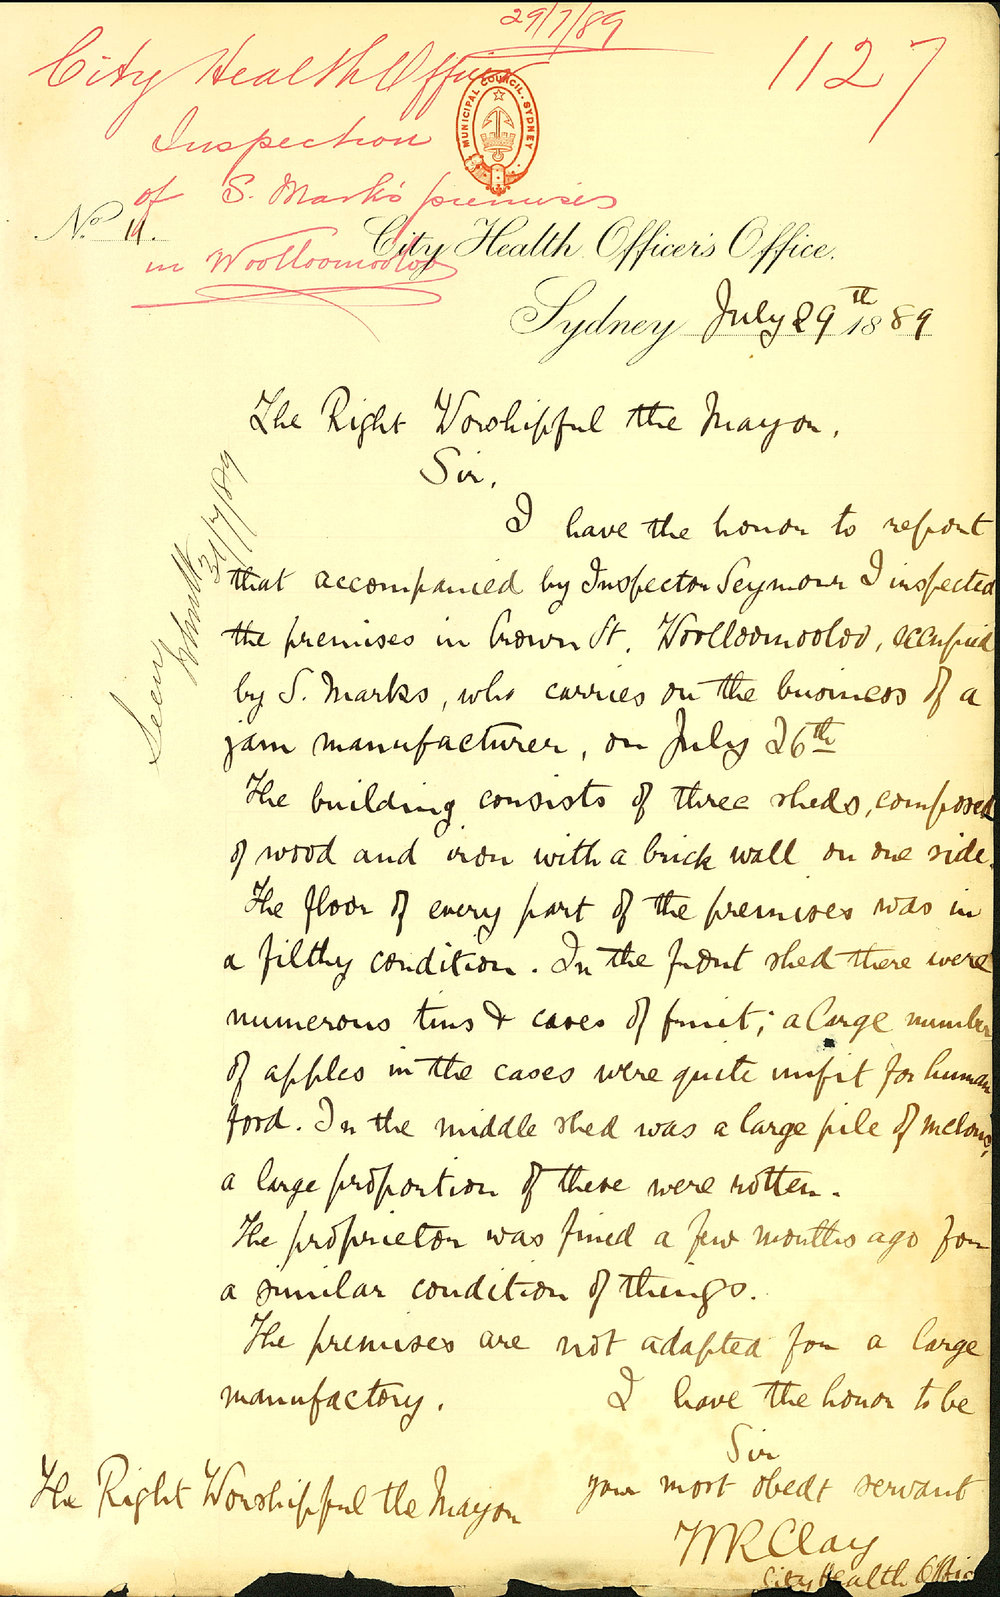 29/7/89
1127
City Health Officer
Inspection
of S. Mark's premises
in Woolloomooloo
MUNICIPAL COUNCIL. SYDNEY
No 11.
City Health Officer's Office.
Sydney July 29th 1889
The Right Worshipful the Mayor.
Sir,
I have the honor to report
that accompanied by Inspector Seymour I inspected
the premises in Crown St. Woolloomooloo, occupied
by S. Marks, who carries on the business of a
jam manufacturer, on July 26th
The building consists of three sheds, composed
of wood and iron with a brick wall on one side.
The floor of every part of the premises was in
a filthy condition. In the front shed there were
numerous tins & cases of fruit; a large number
of apples in the cases were quite unfit for human
food. In the middle shed was a large pile of melons,
a large proportion of these were rotten.
The proprietor was fined a few months ago for
a similar condition of things.
The premises are not adapted for a large
manufactory. I have the honor to be
Sir
your most obedt servant
WR Clay
City Health Offic
The Right Worshipful the Mayor
Seen
31/7/89